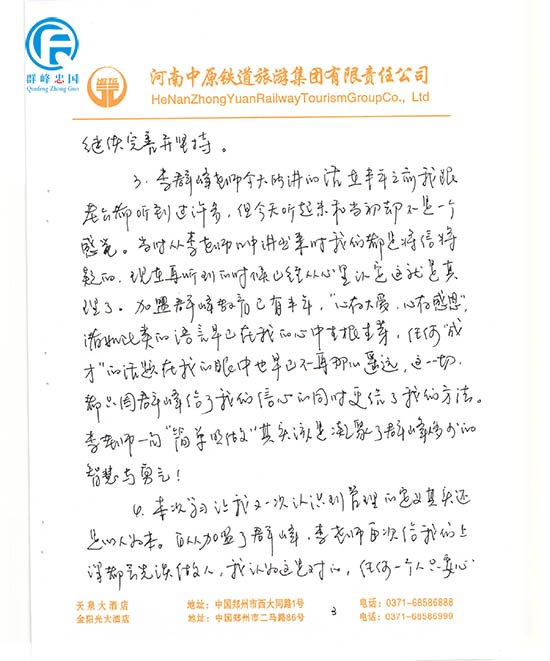 群峰忠国
Qunfeng Zhong Guo
河南中原铁道旅游集团有限责任公司
HeNanZhongYuanRailwayTourismGroupCo., Ltd
继续完善并坚持。
3、李群峰老师今天所讲的话在半年之前我跟
老公都听到过许多，但今天听起来和当初却不是一个
感觉。当时从李老师口中讲出来时我们都是将信将
疑的，现在再听到的时候已经从心里认定这就是真
理了。加盟群峰教育已有半年，“心存大爱、心存感恩”，
诸如此类的语言早已在我的心中生根生芽，任何“成
才”的话题在我的眼中也早已不再那么遥远，这一切
都只因群峰给了我们信心的同时更给了我们方法。
李老师一句“简单照做”其实该是凝聚了群峰多少的
智慧与勇气！
4、本次学习让我又一次认识到管理的定义其实还
是以人为本。自从加盟了群峰，李老师每次给我们上
课都会先谈做人，我认为这是对的，任何一个人只要心
天泉大酒店 地址：中国郑州市西大同路1号 电话：0371-68586888
金阳光大酒店 地址：中国郑州市二马路86号 电话：0371-68586999
3